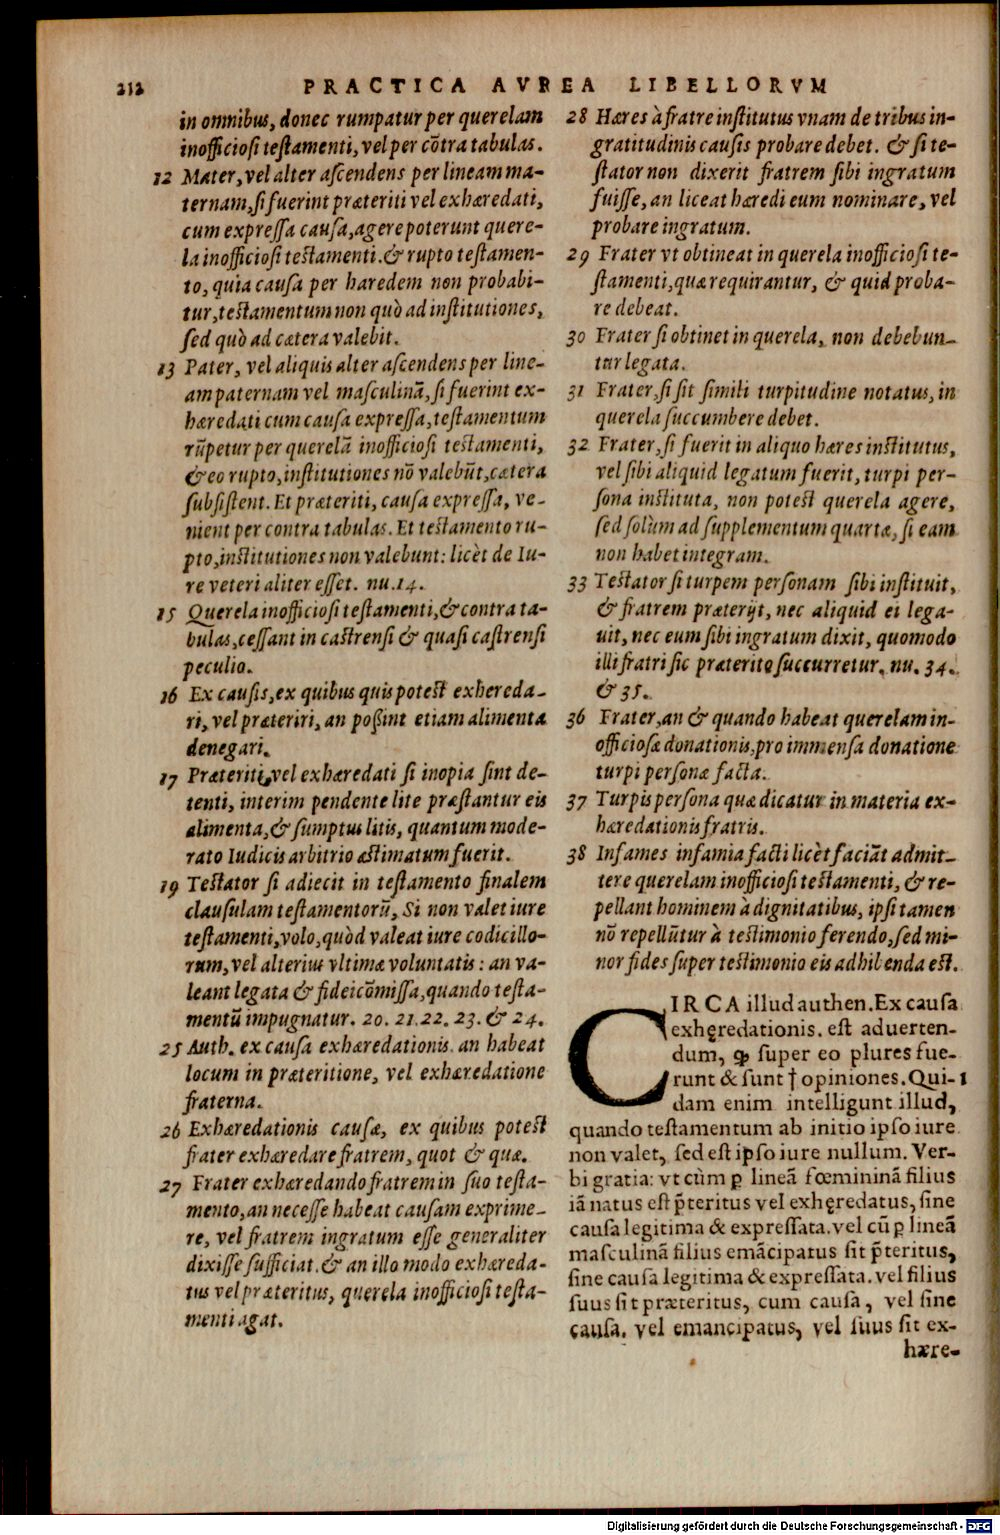 212
PRACTICA AVREA LIBELLORVM
in omnibus, donec rumpatur per querelam
inofficiosi testamenti, vel per cōtra tabulas.
12 Mater, vel alter ascendens per lineam ma-
ternam, si fuerint præteriti vel exhæredati,
cum expressa causa, agere poterunt quere-
la inofficiosi testamenti. & rupto testamen-
to, quia causa per hæredem non probabi-
tur, testamentum non quò ad institutiones,
sed quò ad cætera valebit.
13 Pater, vel aliquis alter ascendens per line-
am paternam vel masculinā, si fuerint ex-
hæredati cum causa expressa, testamentum
rūpetur per querelā inofficiosi testamenti,
& eo rupto, institutiones nō valebūt, cætera
subsistent. Et præteriti, causa expressa, ve-
nient per contra tabulas. Et testamento ru-
pto, institutiones non valebunt: licèt de Iu-
re veteri aliter esset. nu. 14.
15 Querela inofficiosi testamenti, & contra ta-
bulas, cessant in castrensi & quasi castrensi
peculio.
16 Ex causis, ex quibus quis potest exhereda-
ri, vel præteriri, an poßint etiam alimenta
denegari.
17 Præteriti, vel exhæredati si inopia sint de-
tenti, interim pendente lite præstantur eis
alimenta, & sumptus litis, quantum mode-
rato Iudicis arbitrio æstimatum fuerit.
19 Testator si adiecit in testamento finalem
clausulam testamentorū, Si non valet iure
testamenti, volo, quòd valeat iure codicillo-
rum, vel alterius vltimæ voluntatis: an va-
leant legata & fideicōmissa, quando testa-
mentū impugnatur. 20. 21. 22. 23. & 24.
25 Auth. ex causa exhæredationis. an habeat
locum in præteritione, vel exhæredatione
fraterna.
26 Exhæredationis causæ, ex quibus potest
frater exhæredare fratrem, quot & quæ.
27 Frater exhæredando fratrem in suo testa-
mento, an necesse habeat causam exprime-
re, vel fratrem ingratum esse generaliter
dixisse sufficiat. & an illo modo exhæreda-
tus vel præteritus, querela inofficiosi testa-
menti agat.
28 Hæres à fratre institutus vnam de tribus in-
gratitudinis causis probare debet. & si te-
stator non dixerit fratrem sibi ingratum
fuisse, an liceat hæredi eum nominare, vel
probare ingratum.
29 Frater vt obtineat in querela inofficiosi te-
stamenti, quæ requirantur, & quid proba-
re debeat.
30 Frater si obtinet in querela, non debebun-
tur legata.
31 Frater, si sit simili turpitudine notatus, in
querela succumbere debet.
32 Frater, si fuerit in aliquo hæres institutus,
vel sibi aliquid legatum fuerit, turpi per-
sona instituta, non potest querela agere,
sed solùm ad supplementum quartæ, si eam
non habet integram.
33 Testator si turpem personam sibi instituit,
& fratrem præterijt, nec aliquid ei lega-
uit, nec eum sibi ingratum dixit, quomodo
illi fratri sic præterito succurretur. nu. 34.
& 35.
36 Frater, an & quando habeat querelam in-
officiosæ donationis, pro immensa donatione
turpi personæ facta.
37 Turpis persona quæ dicatur in materia ex-
hæredationis fratris.
38 Infames infamia facti licèt faciāt admit-
tere querelam inofficiosi testamenti, & re-
pellant hominem à dignitatibus, ipsi tamen
nō repellūtur à testimonio ferendo, sed mi-
nor fides super testimonio eis adhibenda est.
CIRCA illud authen. Ex causa
exhęredationis. est aduerten-
dum, ꝙ super eo plures fue-
runt & sunt † opiniones. Qui- 1
dam enim intelligunt illud,
quando testamentum ab initio ipso iure
non valet, sed est ipso iure nullum. Ver-
bi gratia: vt cùm ꝑ lineā fœmininā filius
iā natus est p̄teritus vel exhęredatus, sine
causa legitima & expressata. vel cū ꝑ lineā
masculinā filius emācipatus sit p̄teritus,
sine causa legitima & expressata. vel filius
suus sit præteritus, cum causa, vel sine
causa. vel emancipatus, vel suus sit ex-
hære-
Digitalisierung gefördert durch die Deutsche Forschungsgemeinschaft - DFG